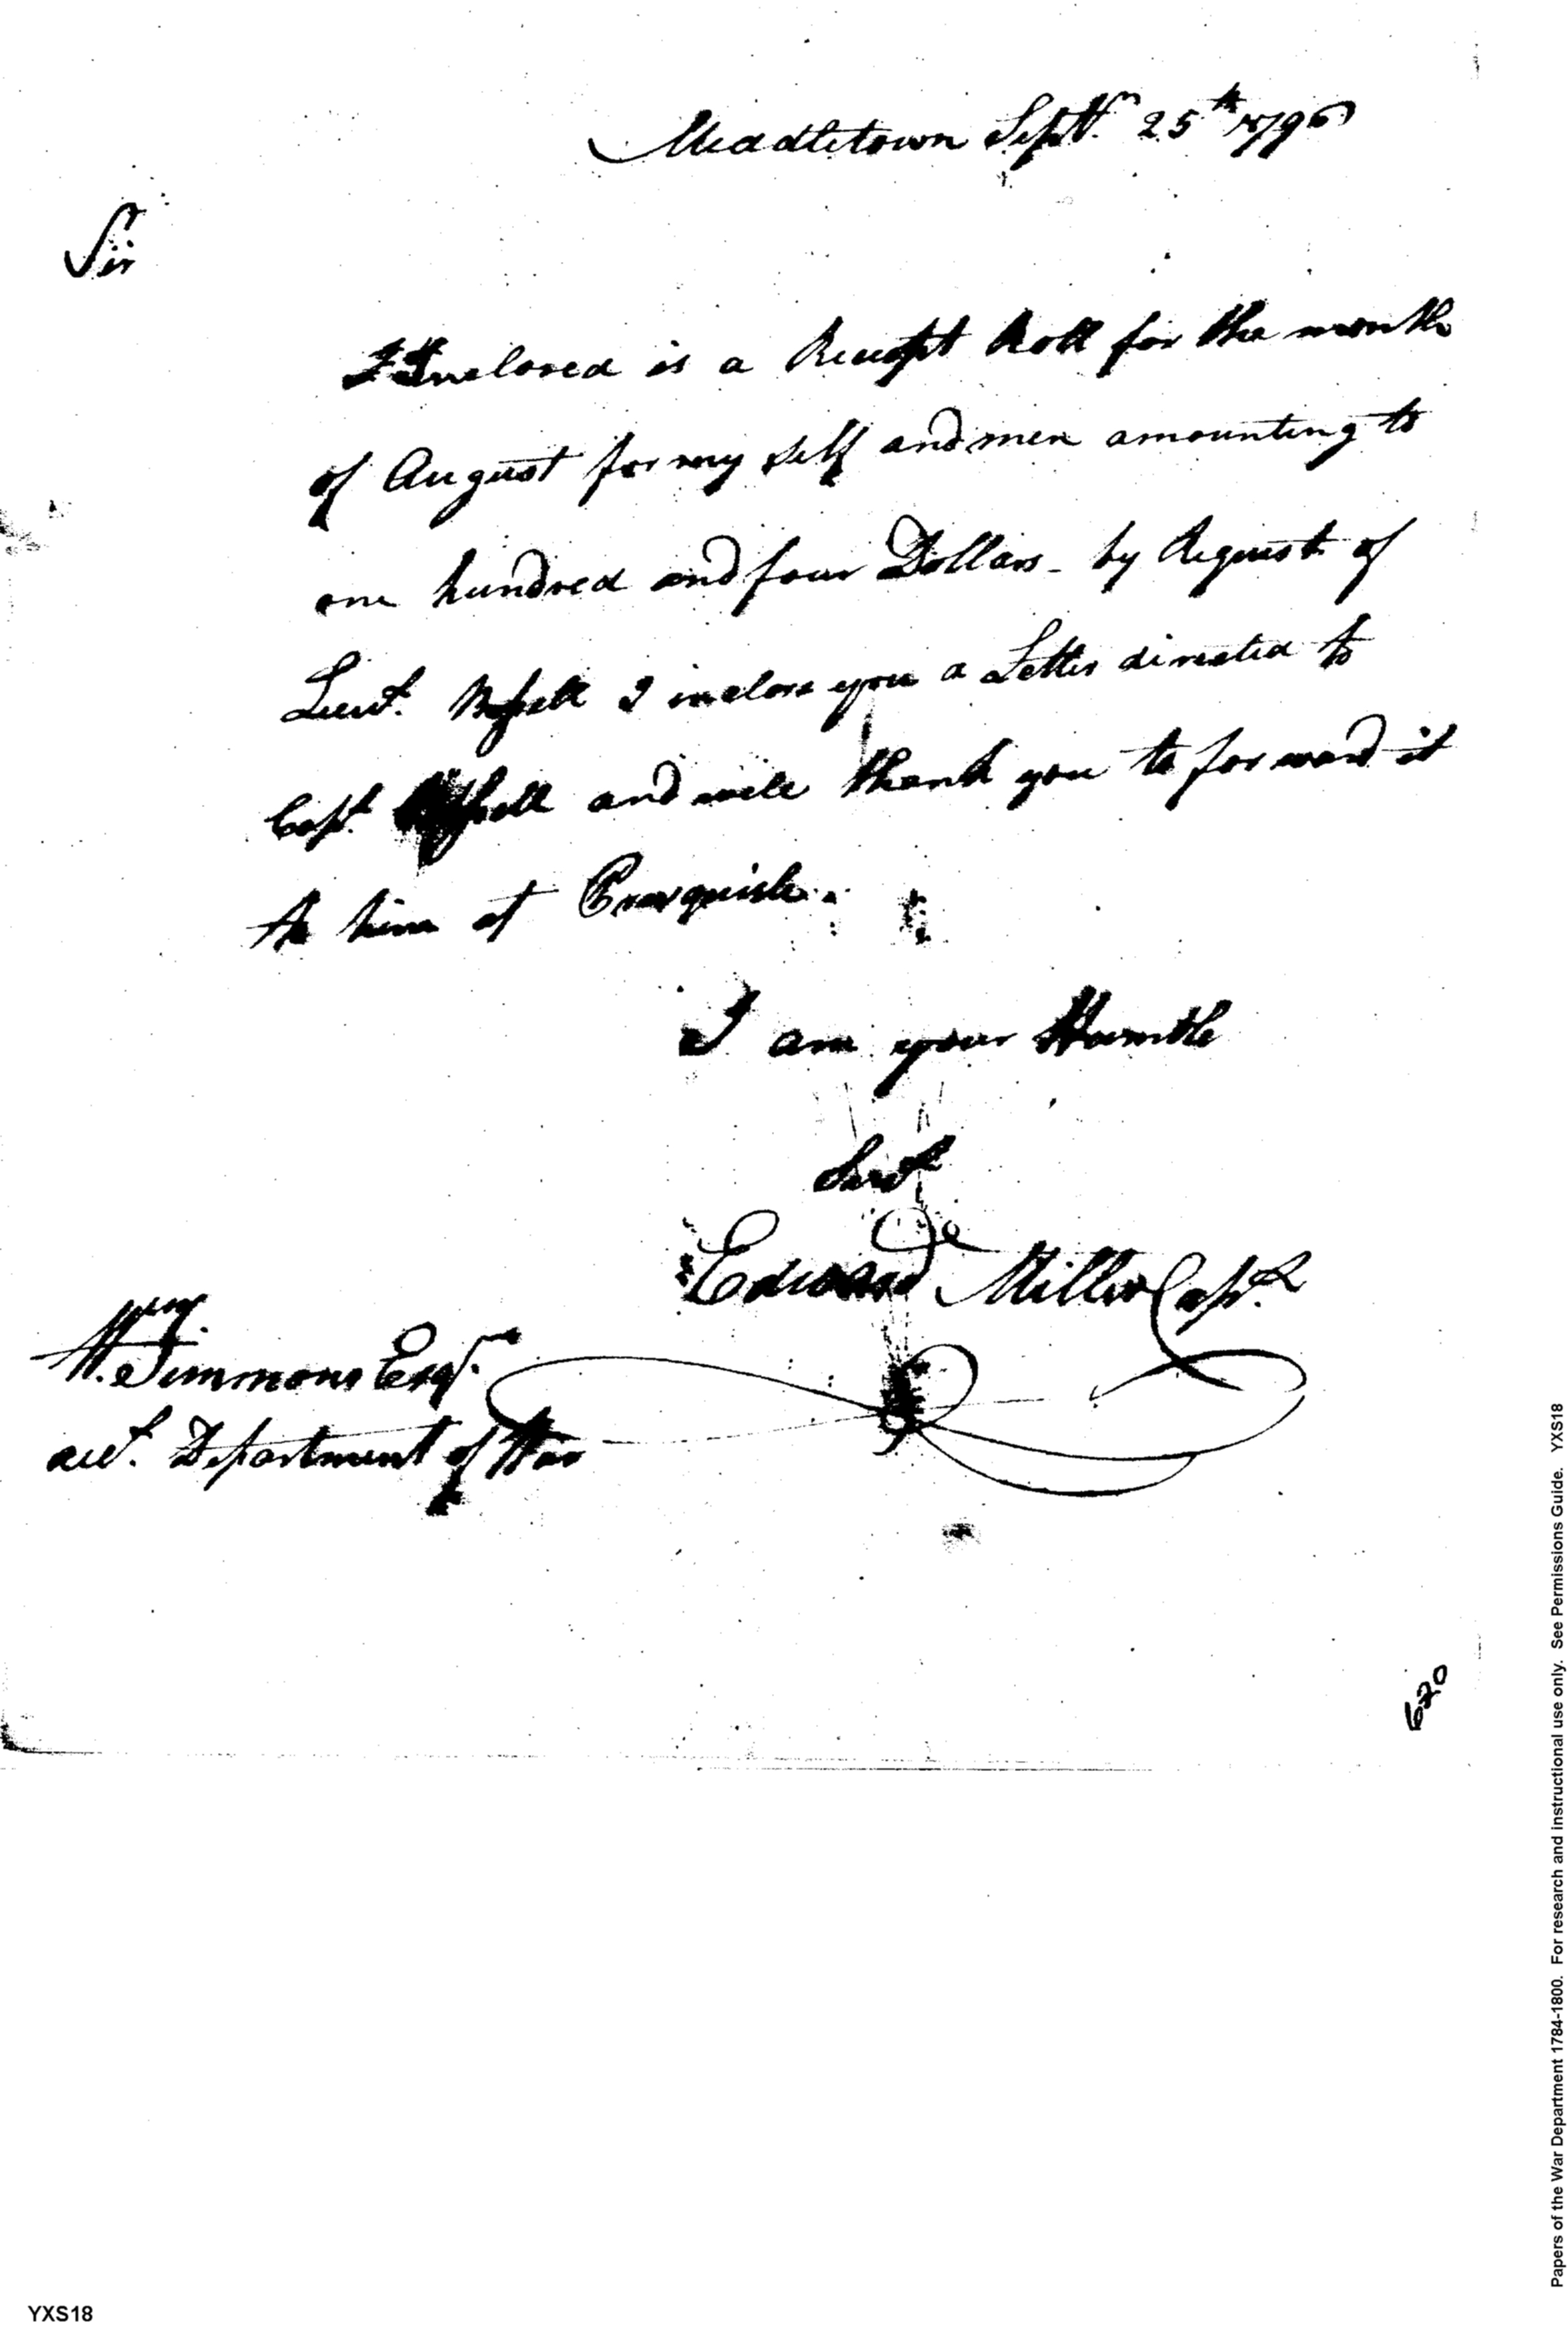 Middletown Septr. 25th 1796
Sir
Inclosed is a Receipt Roll for the month
of August for my self and men amounting to
one hundred and four Dollars - by Request of
Lieut. I inclose you a Letter directed to
Capt. and will thank you to forward it
to him at Presquisle.
I am your Humble
Servt
Edward Miller Capt.
Wm. Simmons Esqr.
act. Department of War
620
Papers of the War Department 1784-1800. For research and instructional use only. See Permissions Guide. YXS18
YXS18